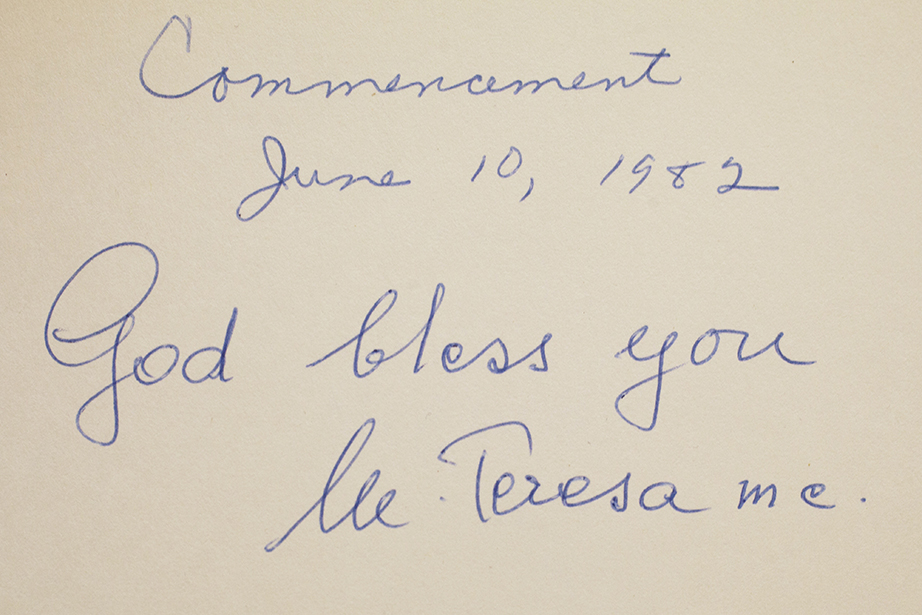 Commencement
June 10, 1982
God bless you
M. Teresa mc.